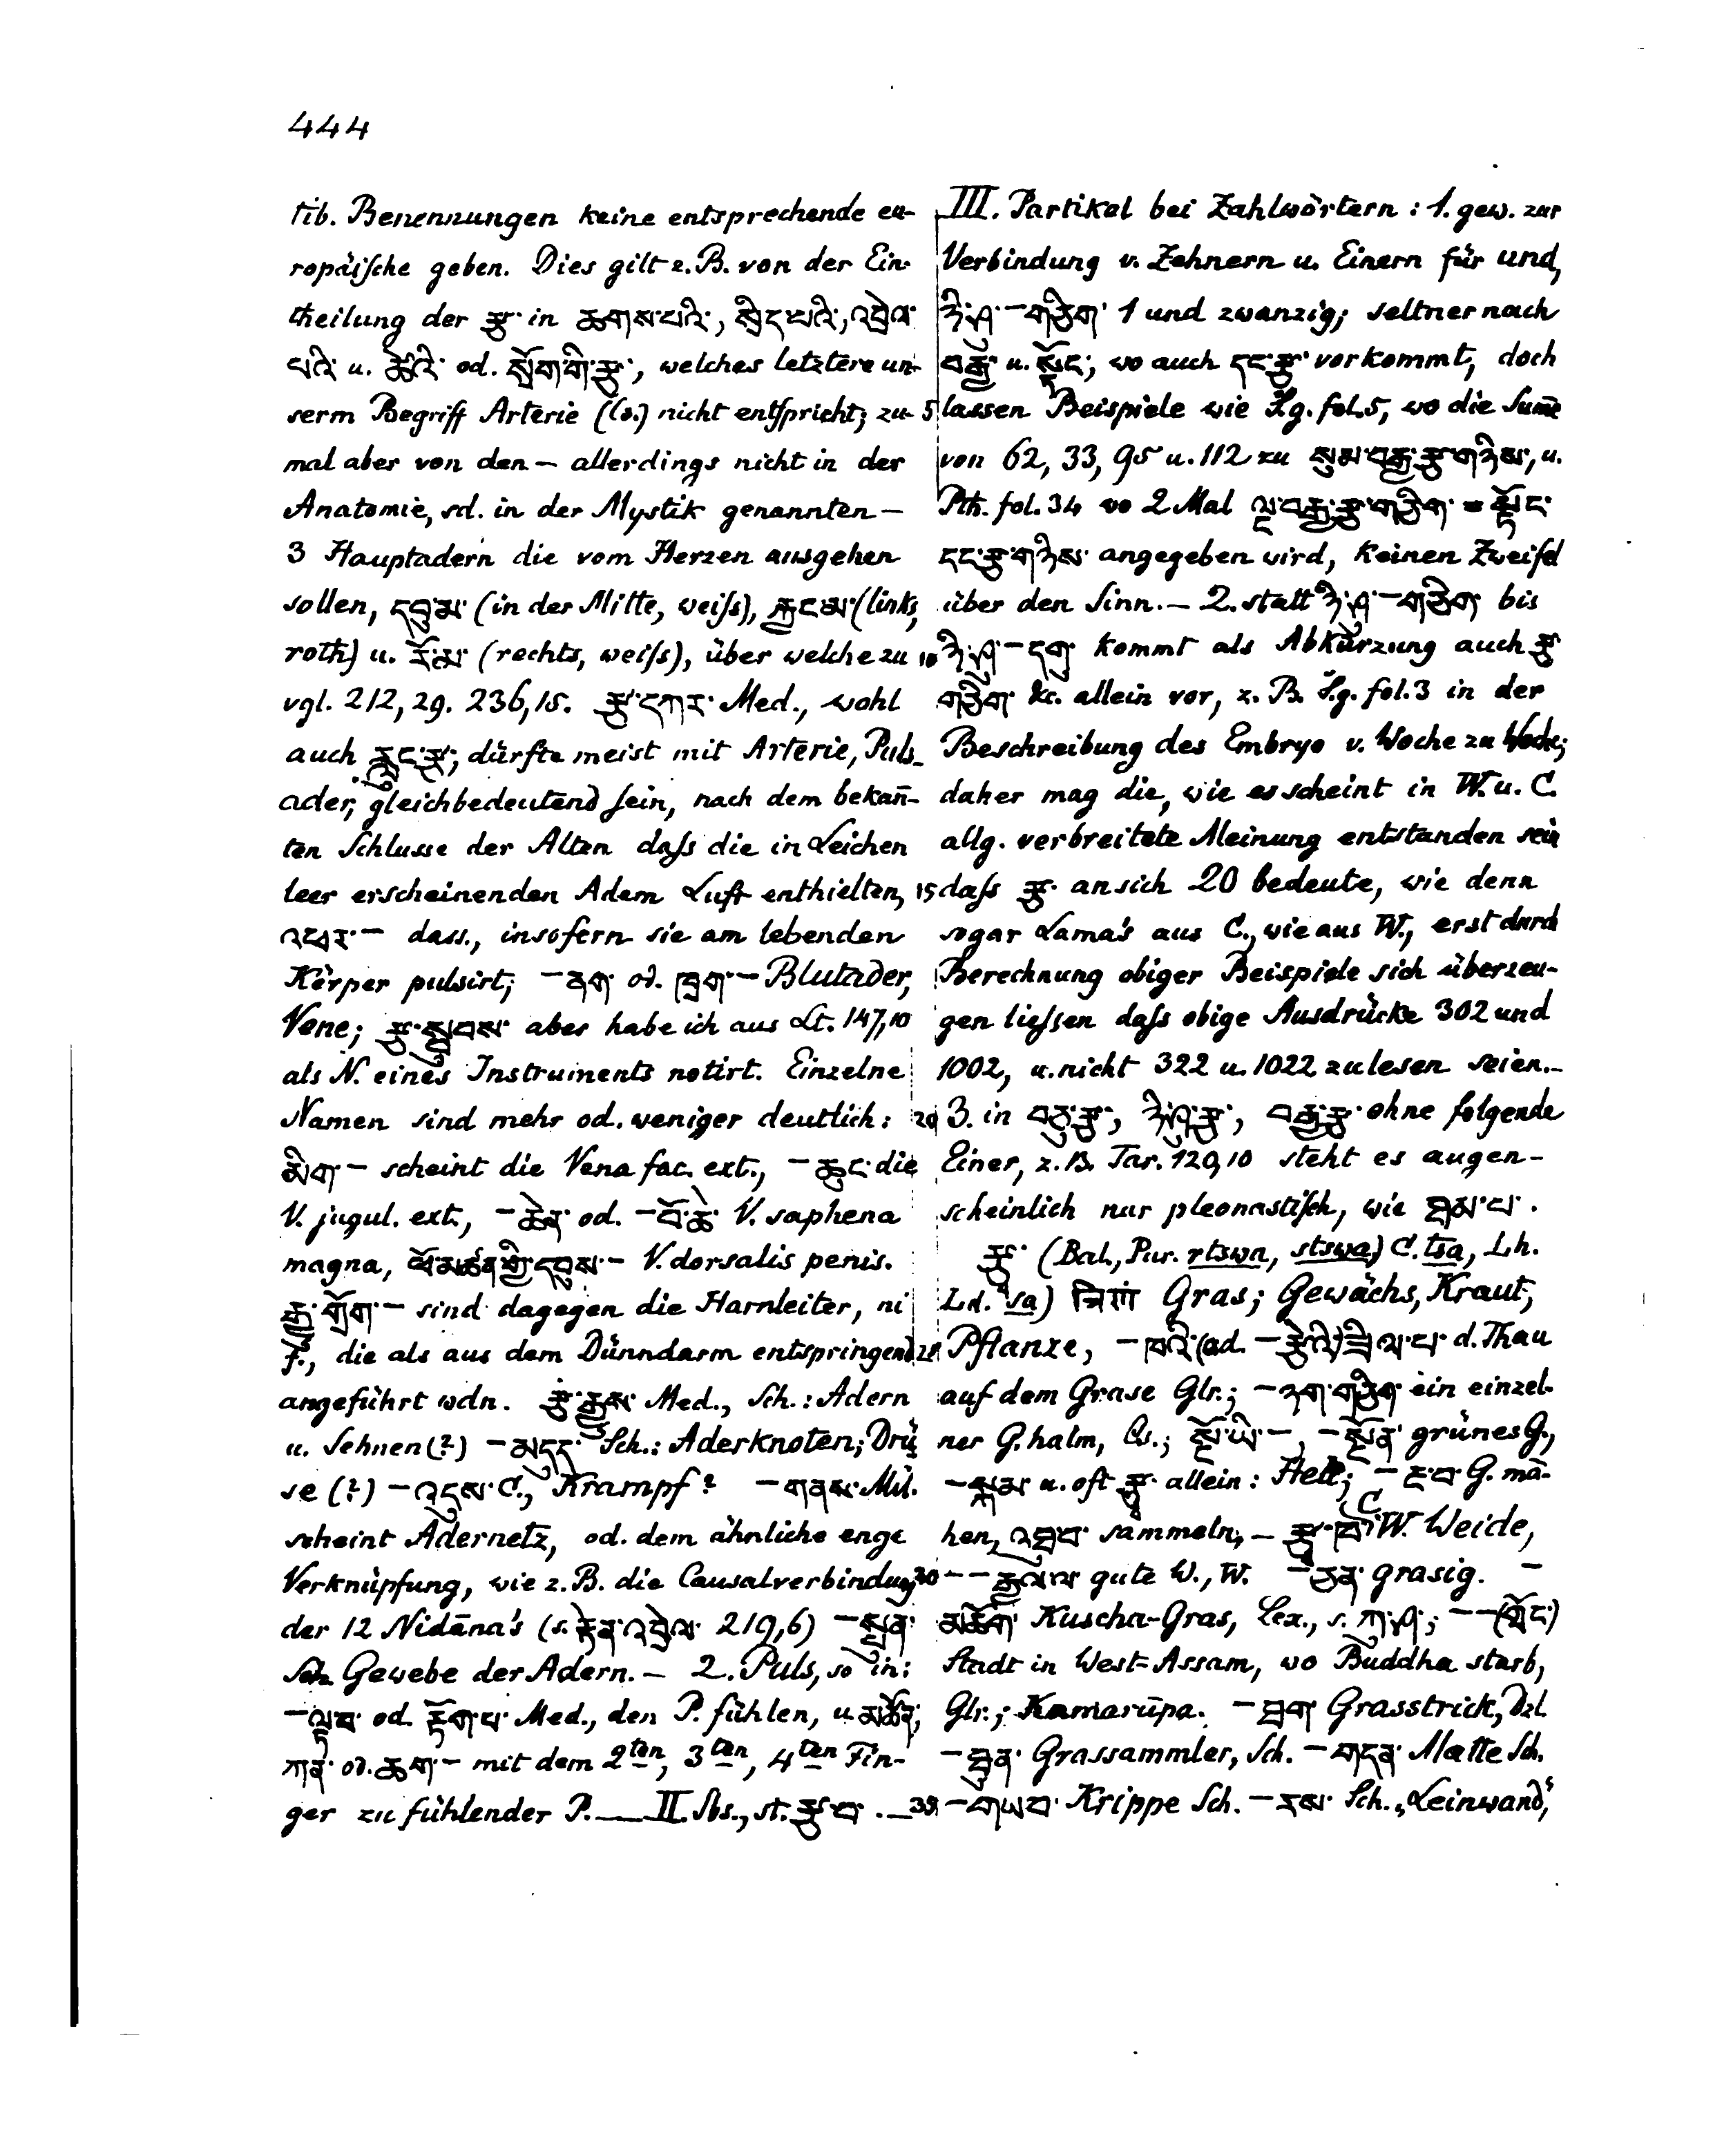 444
tib. Benennungen keine entsprechende eu-
ropäische geben. Dies gilt z.B. von der Ein-
theilung der རྩ་ in ཆགས་པའི་, སྲིད་པའི་, འབྲེལ་
པའི་ u. ཚེའི་ od. སྲོག་གི་རྩ་, welches letztere un-
serm Begriff Arterie (Cs.) nicht entspricht; zu-
mal aber von den — allerdings nicht in der
Anatomie, sd. in der Mystik genannten —
3 Hauptadern die vom Herzen ausgehen
sollen, དབུ་མ་ (in der Mitte, weiss), རྐྱང་མ་ (links,
roth) u. རོ་མ་ (rechts, weiss), über welche zu
vgl. 212,29. 236,15. རྩ་དཀར་ Med., wohl
auch རླུང་རྩ་; dürfte meist mit Arterie, Puls-
ader, gleichbedeutend sein, nach dem bekañ-
ten Schlusse der Alten dass die in Leichen
leer erscheinenden Adern Luft enthielten,
འཕར་ — dass., insofern sie am lebenden
Körper pulsirt; — ནག་ od. ཁྲག་ — Blutader,
Vene; རྩ་སྦུབས་ aber habe ich aus Lt. 147,10
als N. eines Instruments notirt. Einzelne
Namen sind mehr od. weniger deutlich:
མིག་ — scheint die Vena fac. ext., — ཆུང་ die
V. jugul. ext., — ཆེན་ od. — བོ་ཆེ་ V. saphena
magna, ཕོ་མཚན་གྱི་དབུས་ — V. dorsalis penis.
རྒྱ་གྲོག་ — sind dagegen die Harnleiter, ni
f., die als aus dem Dünndarm entspringend
angeführt wdn. རྩ་རྒྱུས་ Med., Sch.: Adern
u. Sehnen (?) — མདུད་ Sch.: Aderknoten; Drü
se (?) — འདུས་ C., Krampf? — གནས་ Mil.
scheint Adernetz, od. dem ähnliche enge
Verknüpfung, wie z.B. die Causalverbindung
der 12 Nidāna's (s. རྟེན་འབྲེལ་ 219,6) — སྲུན་
Sch. Gewebe der Adern. — 2. Puls, so in:
— ལྟ་བ་ od. རྟོག་པ་ Med., den P. fühlen, u. མཚོན་,
ཀན་ od. ཆག་ — mit dem 2ten, 3ten, 4ten Fin-
ger zu fühlender P. — II. Sbs., st. རྩ་བ་. —
III. Partikel bei Zahlwörtern: 1. gew. zur
Verbindung v. Zehnern u. Einern für und,
ཉི་ཤུ་ — གཅིག་ 1 und zwanzig; seltner nach
བརྒྱ་ u. སྟོང་; wo auch དང་རྩ་ vorkommt, doch
5 lassen Beispiele wie S.g. fol.5, wo die Sum̄e
von 62, 33, 95 u. 112 zu སུམ་བརྒྱ་རྩ་གཉིས་, u.
Pth. fol. 34 wo 2 Mal ལྔ་བརྒྱ་རྩ་གཅིག་ = སྟོང་
དང་རྩ་གཉིས་ angegeben wird, keinen Zweifel
über den Sinn. — 2. statt ཉི་ཤུ་ — གཅིག་ bis
10 ཉི་ཤུ་ — དགུ་ kommt als Abkürzung auch རྩ་
གཅིག་ &c. allein vor, z.B. S.g. fol.3 in der
Beschreibung des Embryo v. Woche zu Woche;
daher mag die, wie es scheint in W. u. C.
allg. verbreitete Meinung entstanden sein
15 dass རྩ་ an sich 20 bedeute, wie denn
sogar Lama's aus C., wie aus W., erst durch
Berechnung obiger Beispiele sich überzeu-
gen liessen dass obige Ausdrücke 302 und
1002, u. nicht 322 u. 1022 zu lesen seien. —
20 3. in བཅུ་རྩ་, ཉི་ཤུ་རྩ་, བརྒྱ་རྩ་ ohne folgende
Einer, z.B. Tar. 120,10 steht es augen-
scheinlich nur pleonastisch, wie ཐམ་པ་.
རྩྭ་ (Bal., Pur. rtswa, stswa) C. tsa, Lh.
Ld. sa) Gras; Gewächs, Kraut,
25 Pflanze, — ཁའི་ (od. — རྩེའི་) ཟིལ་པ་ d. Thau
auf dem Grase Glr.; — འག་གཅིག་ ein einzel-
ner G.halm, Cs.; སྔོ་ཡི་ —, — སྔོན་ grünes G.,
— སྐམ་ u. oft རྩྭ་ allein: Heu; — རྔ་བ་ G. mä-
hen, འཐུ་བ་ sammeln; — རྩྭ་ཁ་ C W. Weide,
30 — — རྒྱལ་ལ་ gute W., W. — ཅན་ grasig. —
མཆོག་ Kuscha-Gras, Lex., s. ཀུ་ཤ་; — — (གྲོང་)
Stadt in West-Assam, wo Buddha starb,
Glr.; Kamarūpa. — ཐག་ Grasstrick, Dzl.
— ཐུན་ Grassammler, Sch. — གདན་ Matte Sch.
35 — གཡབ་ Krippe Sch. — རས་ Sch. „Leinwand",